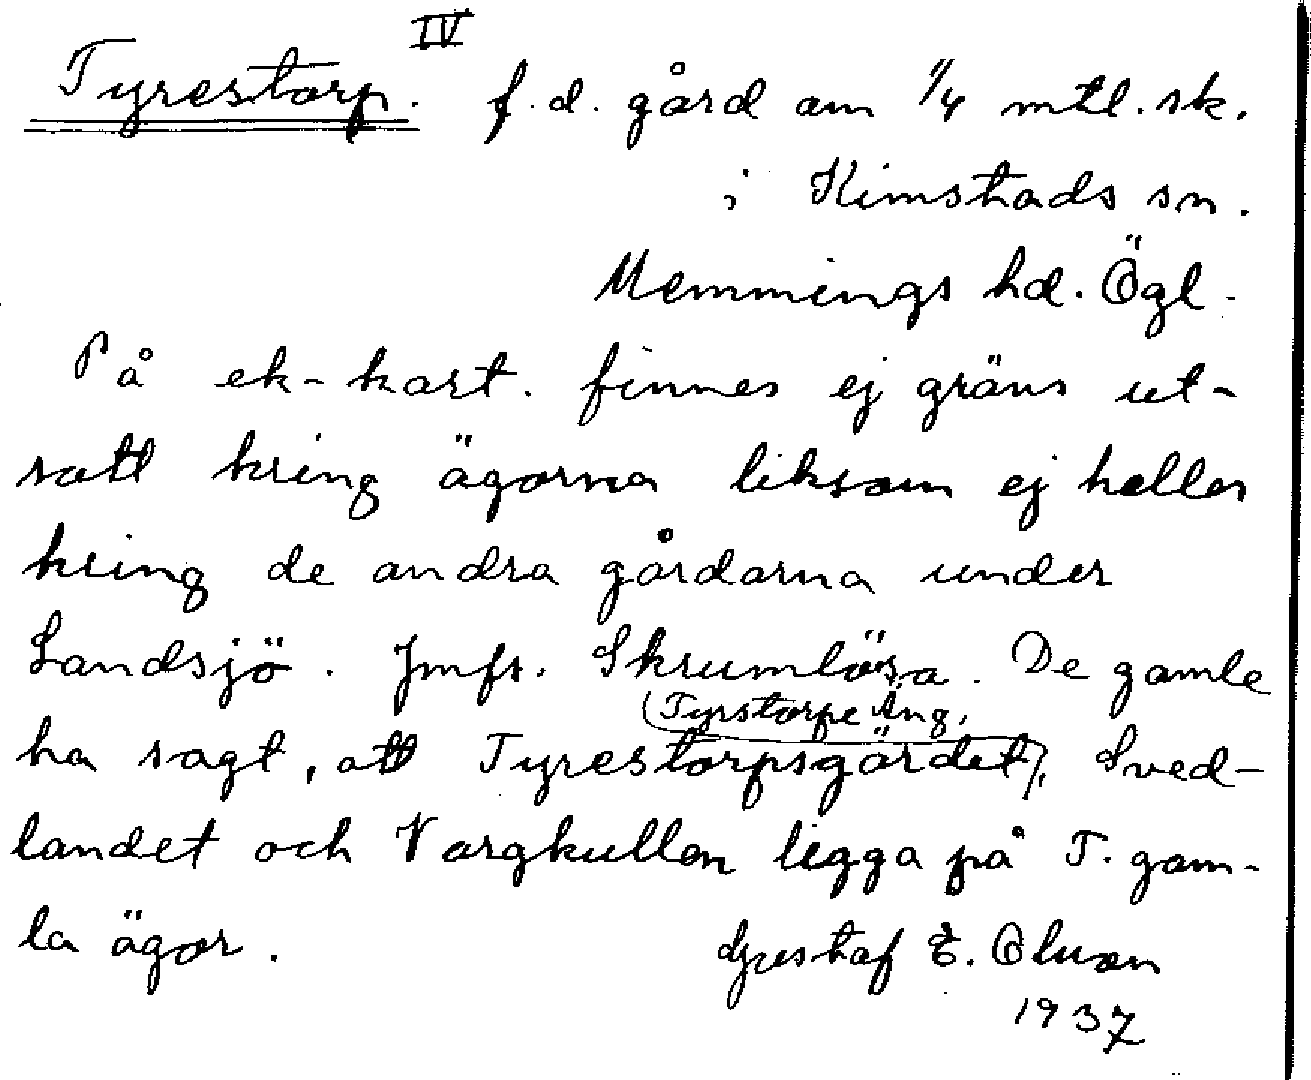 IV
Tyrestorp. f.d. gård om 1/4 mtl. sk.
i Kimstads sn.
Memmings hd. Ögl.
På ek-kart. finnes ej gräns ut-
satt kring ägorna liksom ej heller
kring de andra gårdarna under
Landsjö. Jmfr. Skrumlösa. De gamle
(Tyrstorpe äng.
ha sagt, att Tyrestorpsgärdet), Sved-
landet och Vargkullen ligga på T. gam-
la ägor.
Gustaf E. Olsson
1937